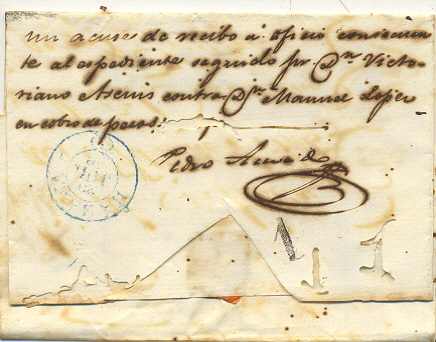 un acuse de recibo á oficio consecuen
te al espediente seguido pr Dn Victo-
riano Asenis contra Dn Manuel Lopez
en cobro de pesos.
Pedro
1
1 1